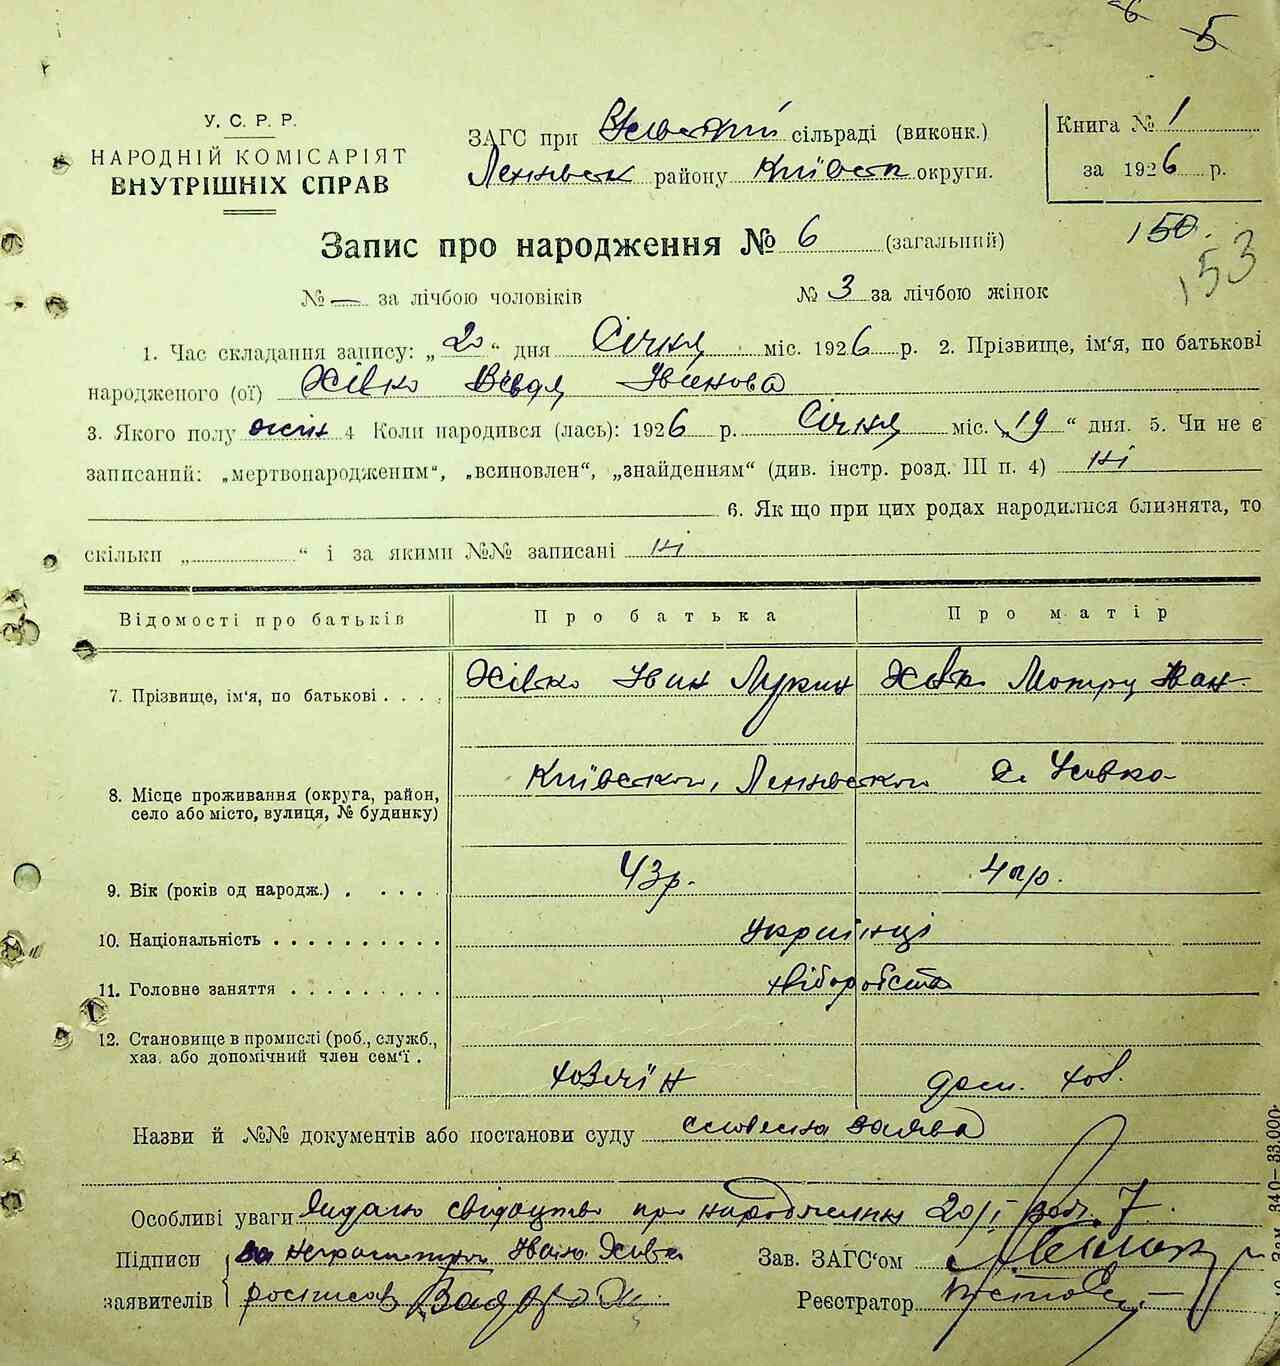 6
5
У. С. Р. Р.
НАРОДНІЙ КОМІСАРІЯТ
ВНУТРІШНІХ СПРАВ
ЗАГС при сільраді (виконк.)
району Київськ округи.
Книга № 1
за 1926 р.
Запис про народження № 6 (загальний)
150.
153
№ — за лічбою чоловіків № 3 за лічбою жінок
1. Час складання запису: „20“ дня Січня міс. 1926 р. 2. Прізвище, ім‘я, по батькові
народженого (ої) Хівко Іванова
3. Якого полу жін 4 Коли народився (лась): 1926 р. Січня міс. „19“ дня. 5. Чи не є
записаний: „мертвонародженим“, „всиновлен“, „знайденням“ (див. інстр. розд. III п. 4) Ні
6. Як що при цих родах народилися близнята, то
скільки „ “ і за якими №№ записані Ні
Відомості про батьків Про батька Про матір
7. Прізвище, ім‘я, по батькові . . . . Хівко Іван Лукин Хівк Мотря Іван
8. Місце проживання (округа, район,
село або місто, вулиця, № будинку)
Київської, с.
9. Вік (років од народж.) . . . . . 43 р. 40 р.
10. Національність . . . . . . . . . . Українці
11. Головне заняття . . . . . . . . . хліборобство
12. Становище в промислі (роб., служб.,
хаз. або допомічний член сем‘ї .
хозяїн доп. хоз.
Назви й №№ документів або постанови суду словесна заява
Особливі уваги Видано свідоцтво про народження 20/I
Підписи за неграмотного Івана Хівка Зав. ЗАГС‘ом
заявителів росписав Реєстратор